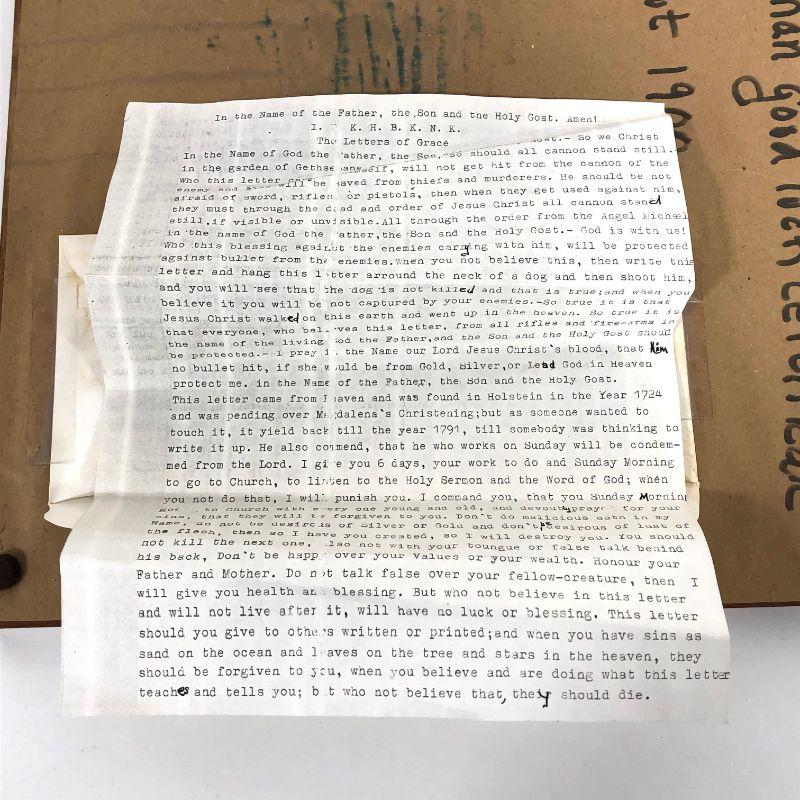 In the Name of the Father, the Son and the Holy Gost. Amen!
I. K. H. B. K. N. K.
The Letters of Grace
So we Christ
In the Name of God the ather, the Son, so should all cannon stand still.
in the garden of will not get hit from the cannon of the
Who this letter will be saved from thiefs and murderers. He should be not
enemy and
afraid of sword, rifles or pistols, then when they get used against him,
they must through the d ad and order of Jesus Christ all cannot stand
still, if visible or unvisible.All through the order from the Angel Michael
in the name of God the ather,the Son and the Holy Gost.- God is with us!
Who this blessing against the enemies carryng with him, will be protected
against bullet from the enemies.When you not believe this, then write this
letter and hang this l tter arround the neck of a dog and then shoot him,
and you will see that the dog is not killed and that is true;and when you
believe it you will be not captured by your enemies.-So true it is that
Jesus Christ walked on this earth and went up in the heaven. So true it is
that everyone, who bel eves this letter, from all rifles and fire-arms in
the name of the living od the Father,and the Son and the Holy Gost should
be protected.- I pray i the Name our Lord Jesus Christ's blood, that him
no bullet hit, if she w uld be from Gold, Silver,or Lead God in Heaven
protect me. in the Name of the Father, the Son and the Holy Gost.
This letter came from eaven and was found in Holstein in the Year 1724
and was pending over Ma dalena's Christening;but as someone wanted to
touch it, it yield back till the year 1791, till somebody was thinking to
write it up. He also co mend, that he who works on Sunday will be condem-
med from the Lord. I gi e you 6 days, your work to do and Sunday Morning
to go to Church, to listen to the Holy Sermon and the Word of God; when
you not do that, I will punish you. I command you, that you Sunday Morning
go to church with every one young and old, and devoutly pray for your
sins, that they will be forgiven to you. Don't do malicious oath in my
Name, do not be desirous of Silver or Gold and don't be desirous of lust of
the flesh, then so I have you created, so I will destroy you. You should
not kill the next one, lso not with your toungue or false talk behind
his back, Don't be happ over your Values or your wealth. Honour your
Father and Mother. Do n t talk false over your fellow-creature, then I
will give you health an blessing. But who not believe in this letter
and will not live after it, will have no luck or blessing. This letter
should you give to others written or printed;and when you have sins as
sand on the ocean and l aves on the tree and stars in the heaven, they
should be forgiven to you, when you believe and are doing what this letter
teaches and tells you; b t who not believe that, they should die.